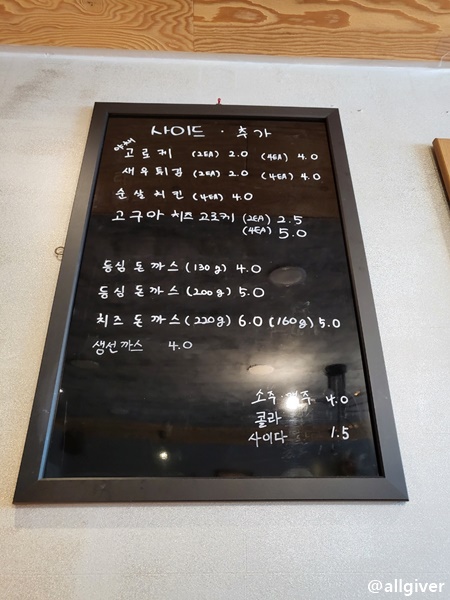 사이드 · 추가
야채
고로케 (2EA) 2.0 (4EA) 4.0
새우튀김 (2EA) 2.0 (4EA) 4.0
순살치킨 (4EA) 4.0
고구마 치즈 고로케 (2EA) 2.5
(4EA) 5.0
등심 돈까스 (130g) 4.0
등심 돈까스 (200g) 5.0
치즈 돈까스 (220g) 6.0 (160g) 5.0
생선까스 4.0
소주·맥주 4.0
콜라
사이다 1.5
@allgiver